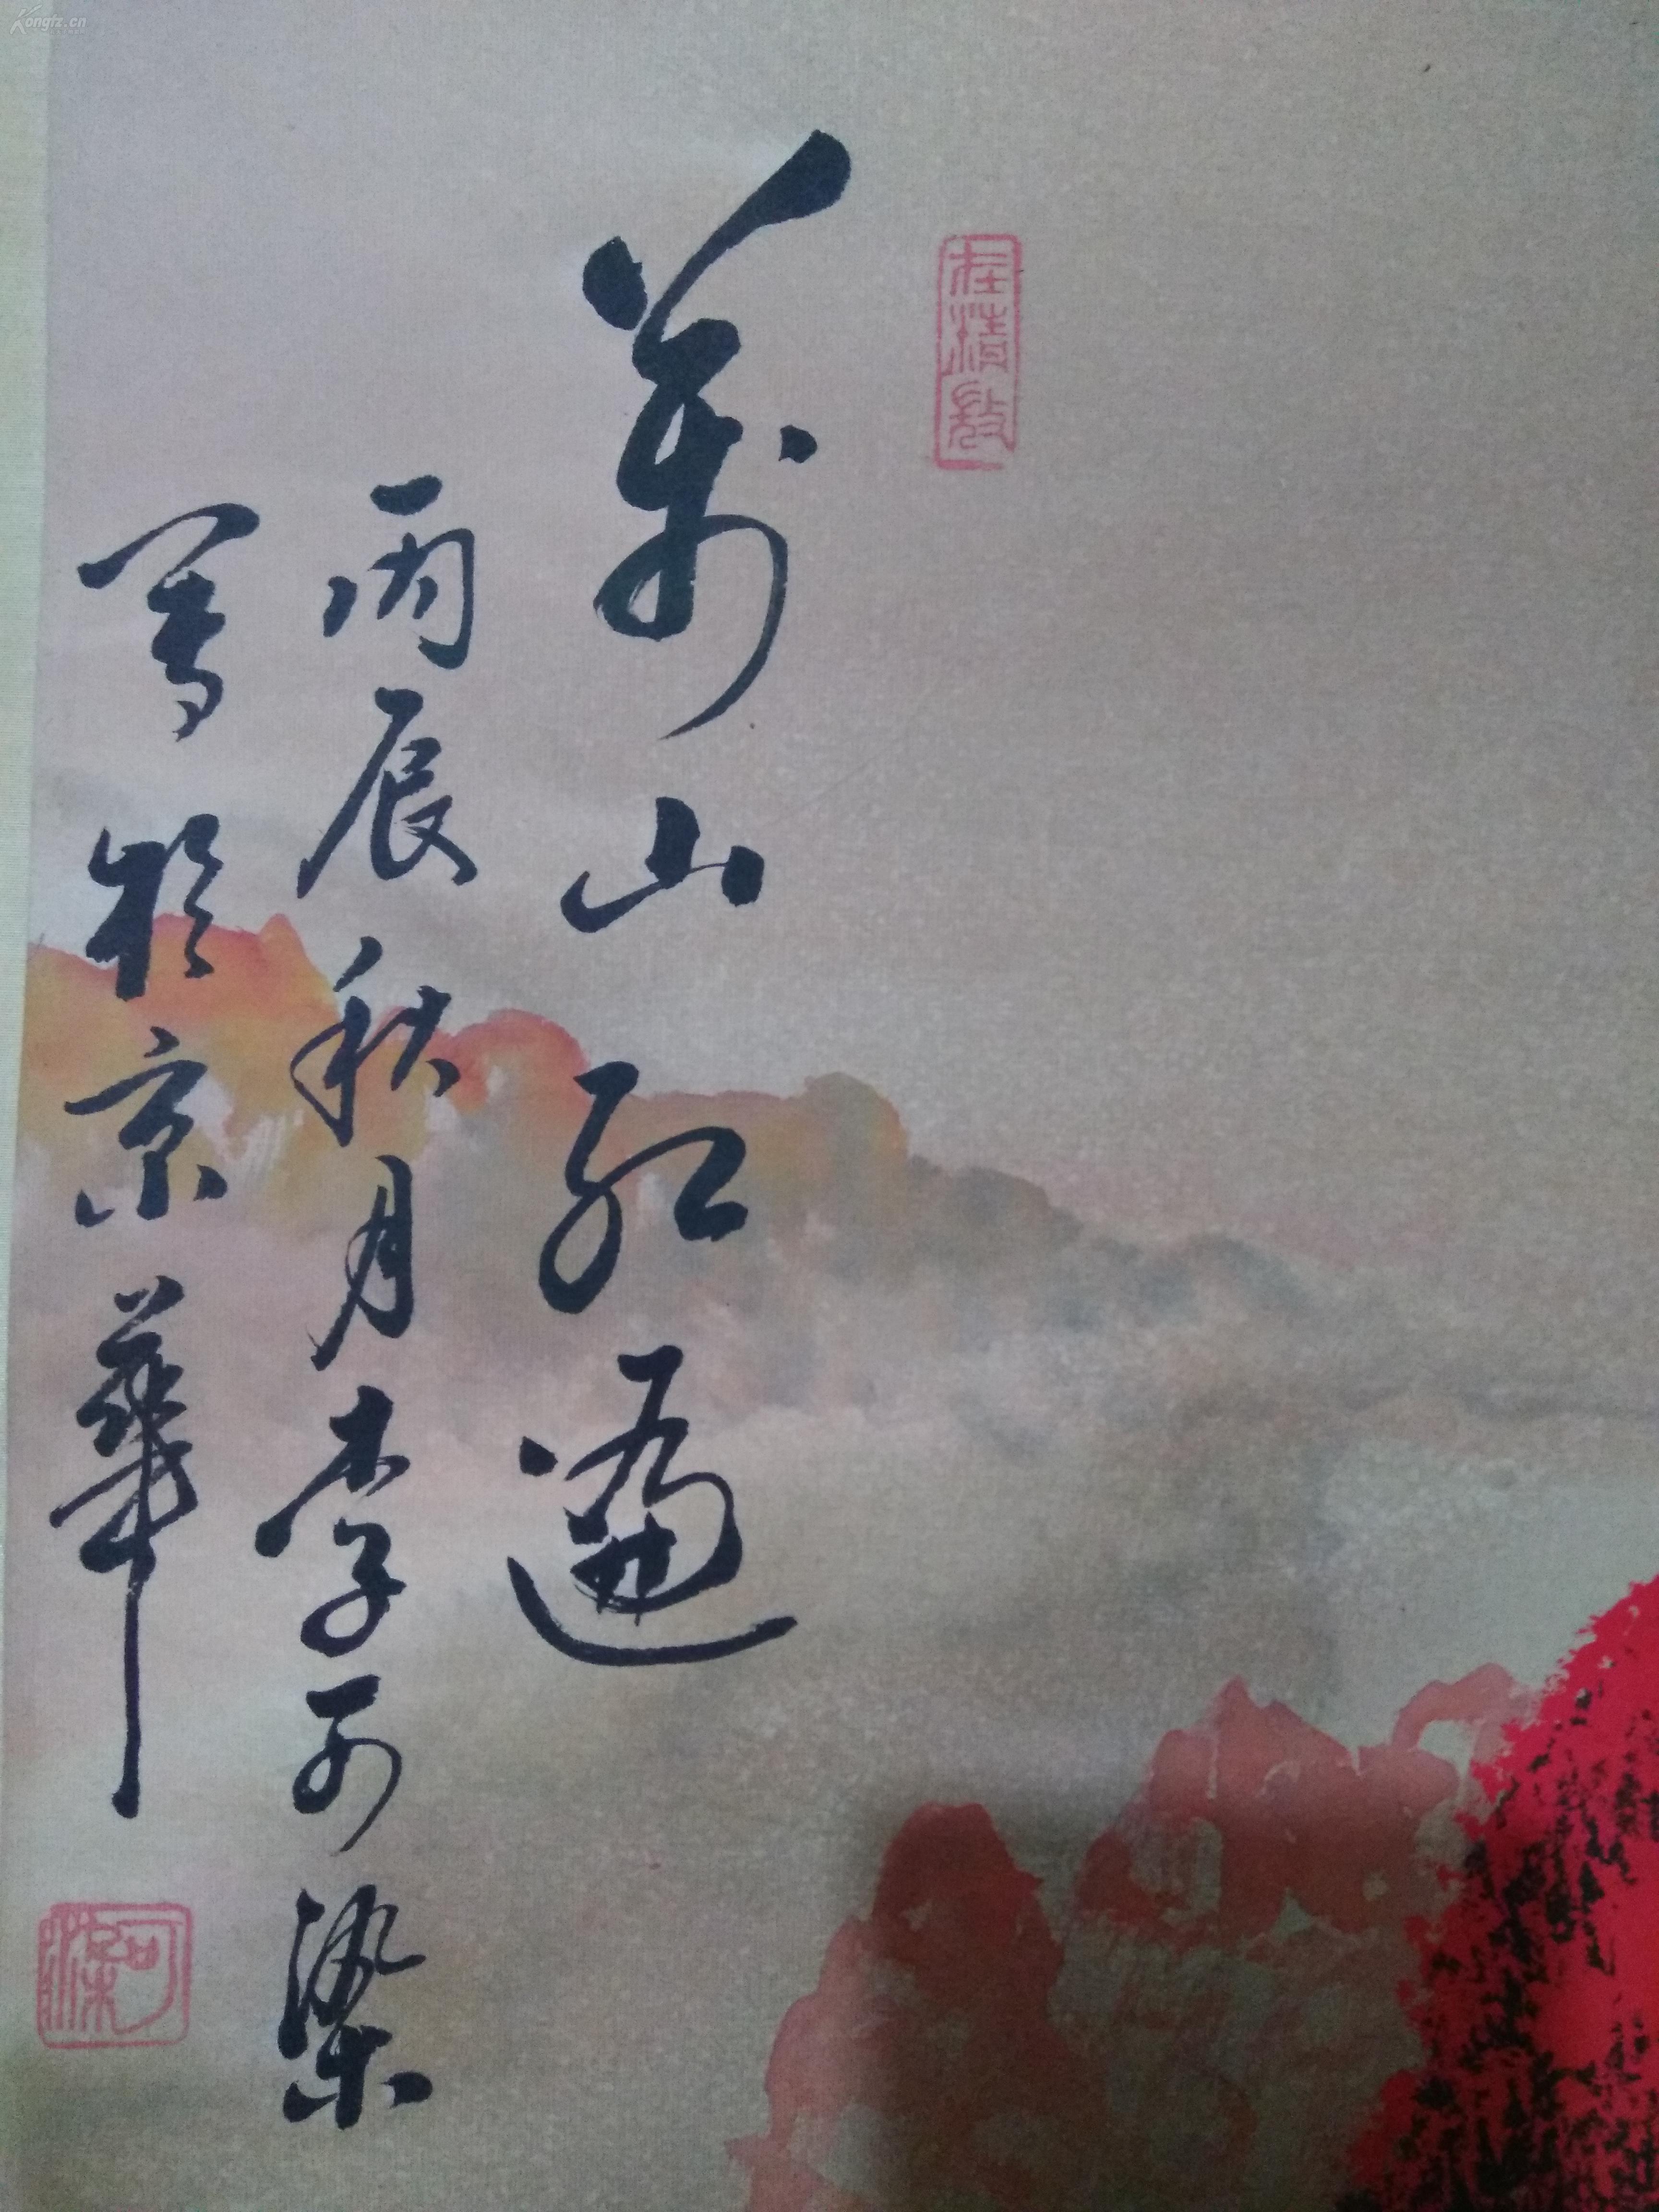 萬山紅遍
丙辰秋月李可染
寫於京華
可染
Kongfz.cn